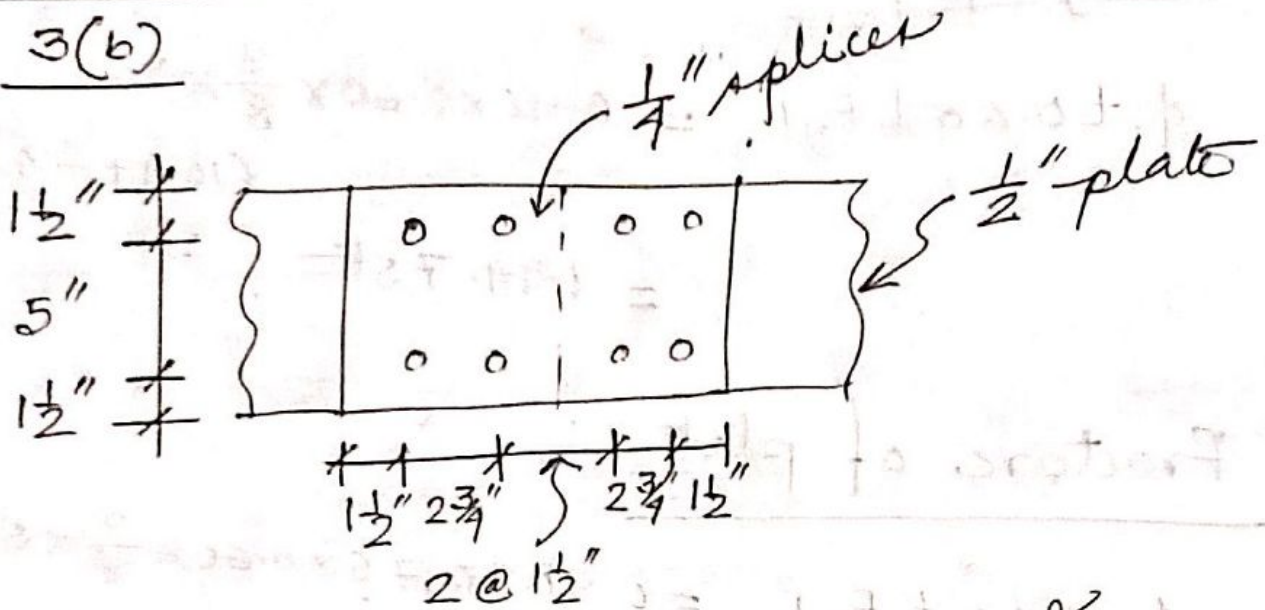 3(b)
1/4" splices
1/2" plate
1 1/2"
5"
1 1/2"
1 1/2" 2 3/4" 2 3/4" 1 1/2"
2 @ 1 1/2"